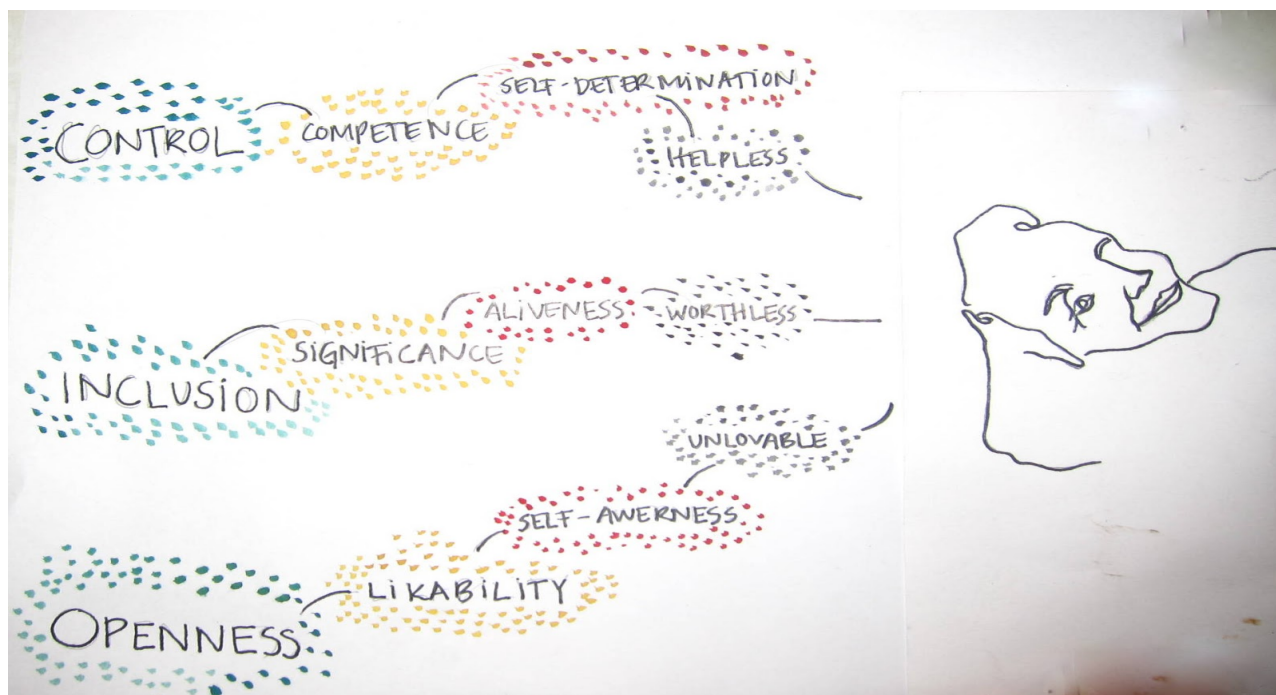 CONTROL
COMPETENCE
SELF-DETERMINATION
HELPLESS
INCLUSION
SIGNIFICANCE
ALIVENESS
WORTHLESS
OPENNESS
LIKABILITY
SELF-AWERNESS
UNLOVABLE